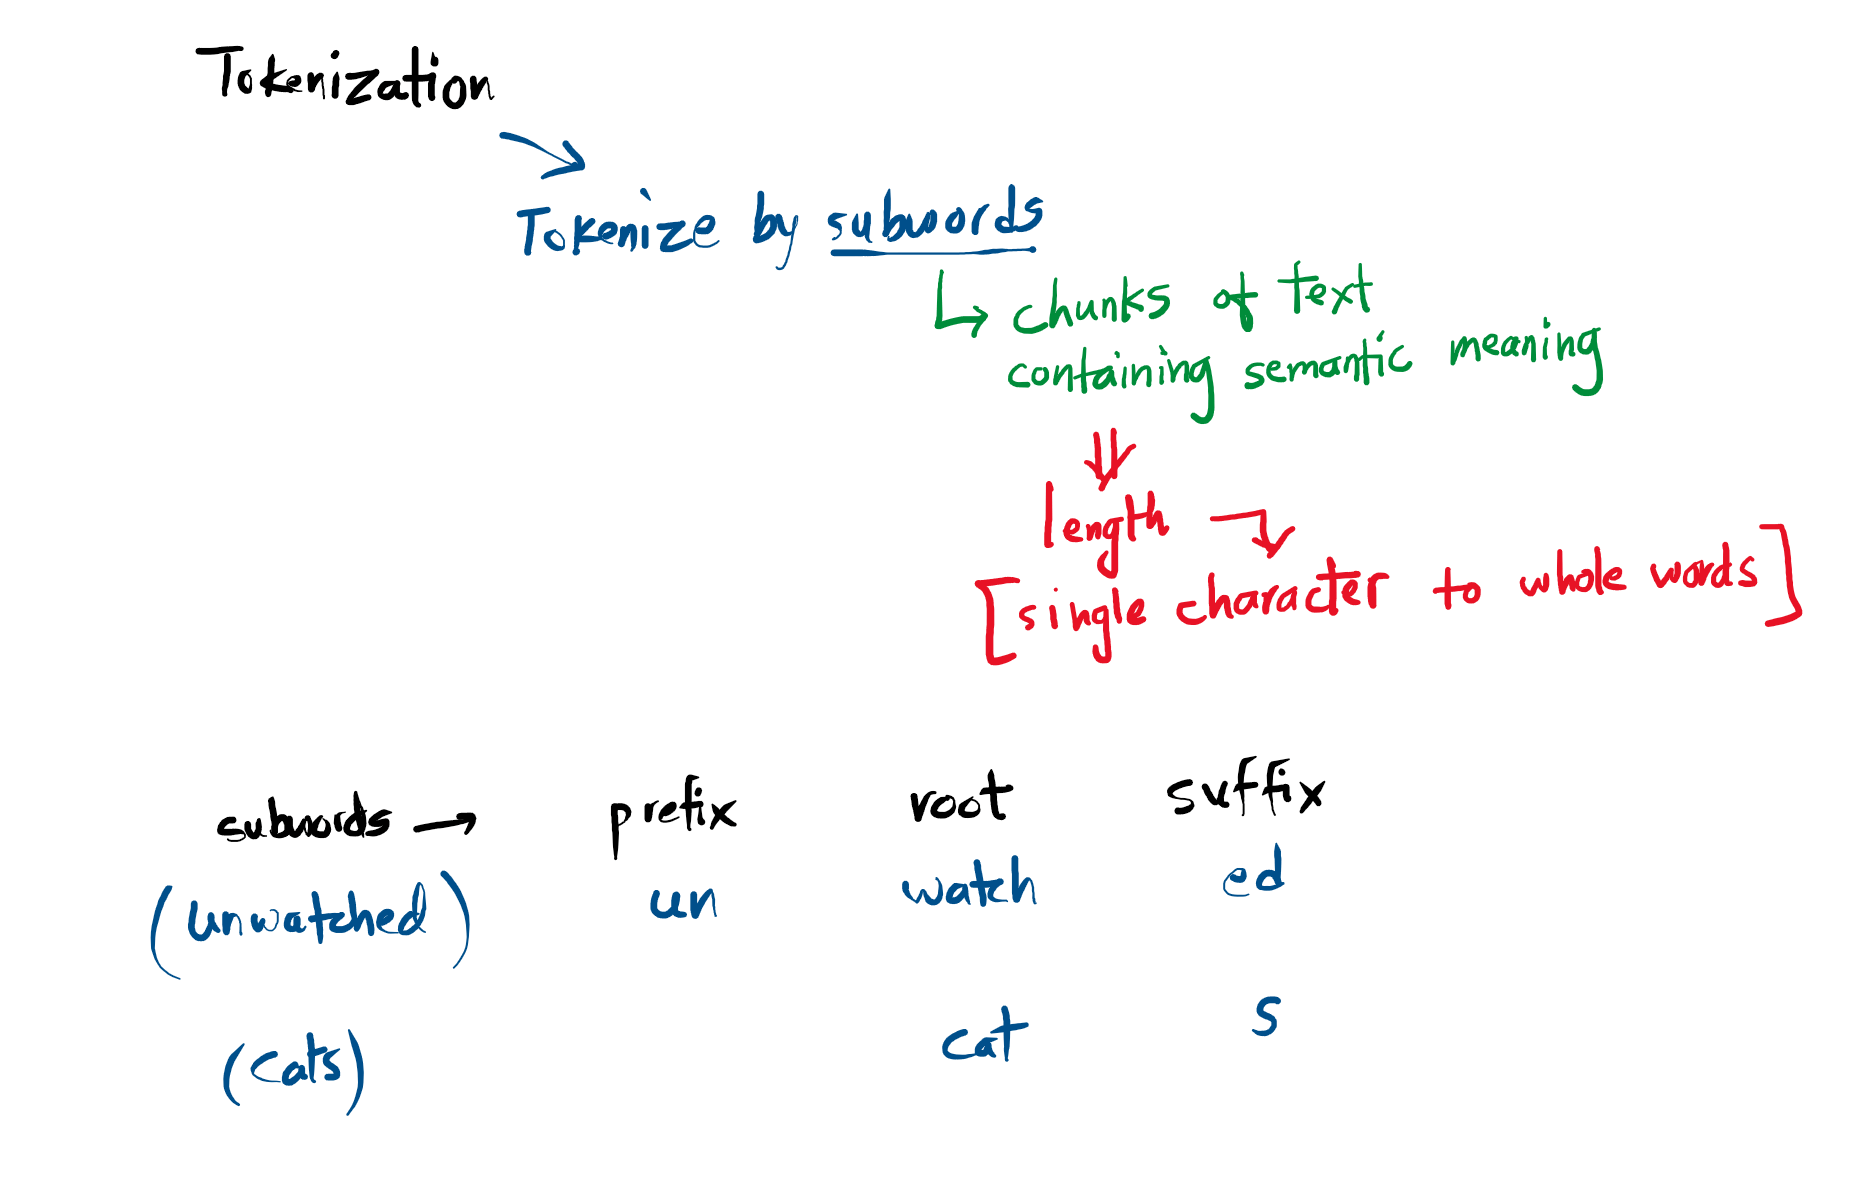 Tokenization
Tokenize by subwords
chunks of text
containing semantic meaning
length
[single character to whole words]
subwords → prefix root suffix
(unwatched) un watch ed
(cats) cat s